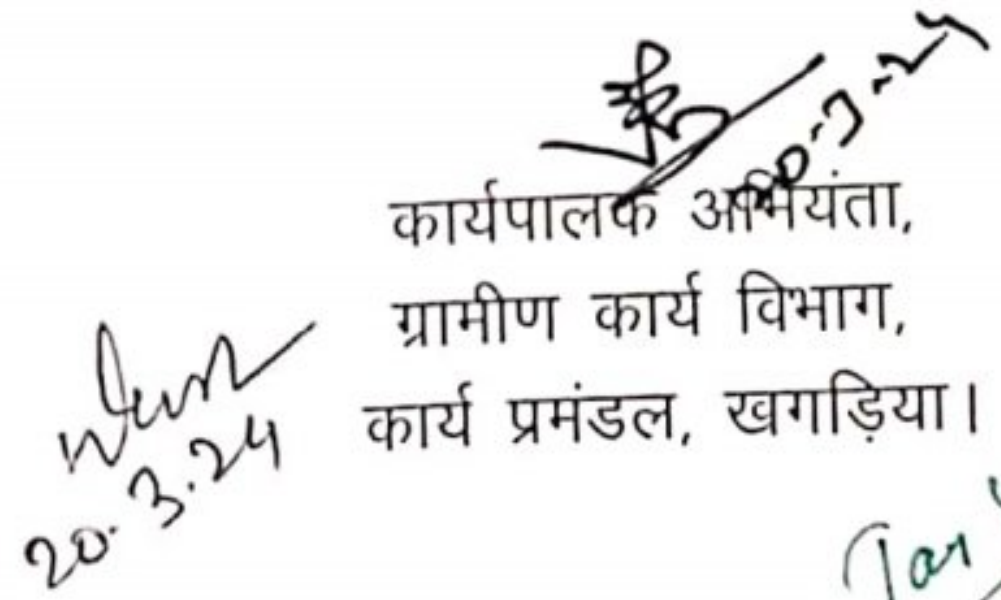 20-3-24
कार्यपालक अभियंता,
ग्रामीण कार्य विभाग,
कार्य प्रमंडल, खगड़िया।
20.3.24